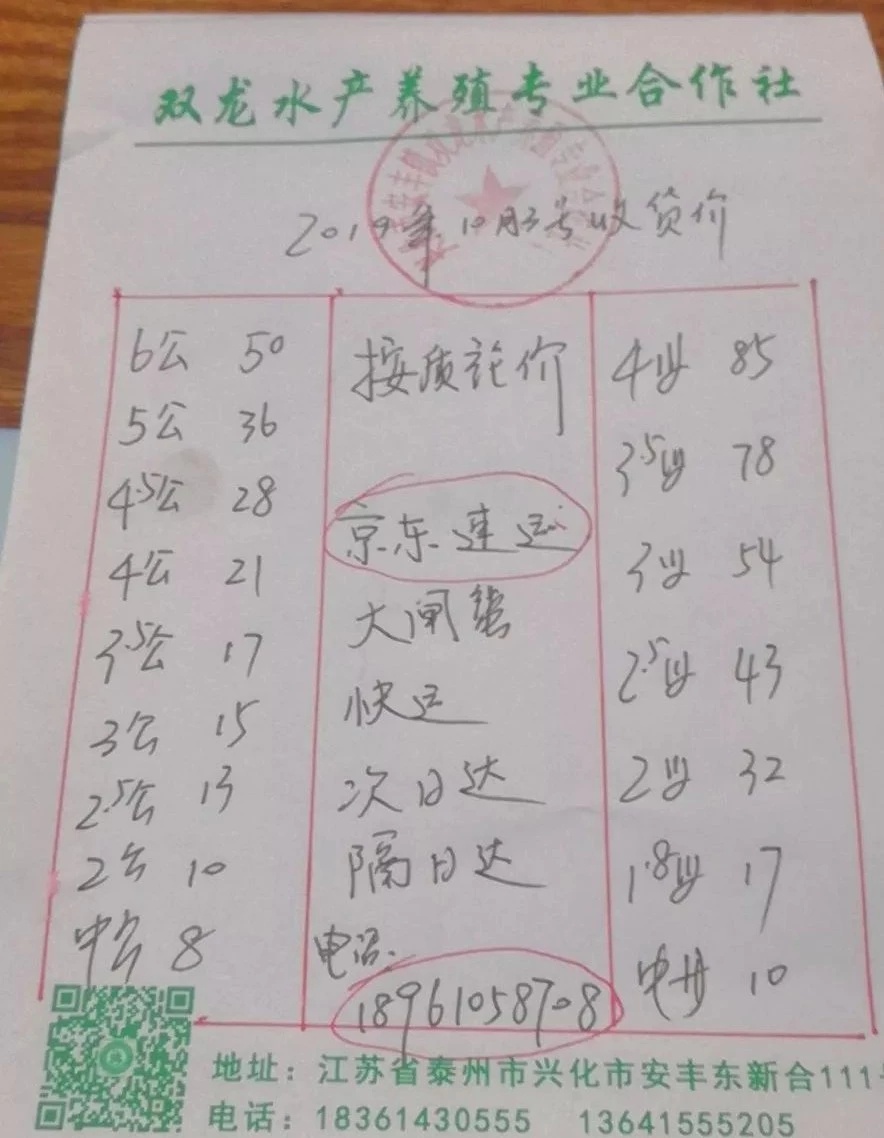 双龙水产养殖专业合作社
2019年10月3号收货价
6公 50
5公 36
4.5公 28
4公 21
3.5公 17
3公 15
2.5公 13
2公 10
中公 8
按质论价
京东速运
大闸蟹
快运
次日达
隔日达
电话.
18961058708
4母 85
3.5母 78
3母 54
2.5母 43
2母 32
1.8母 17
中母 10
地址：江苏省泰州市兴化市安丰东新合111
电话：18361430555 13641555205